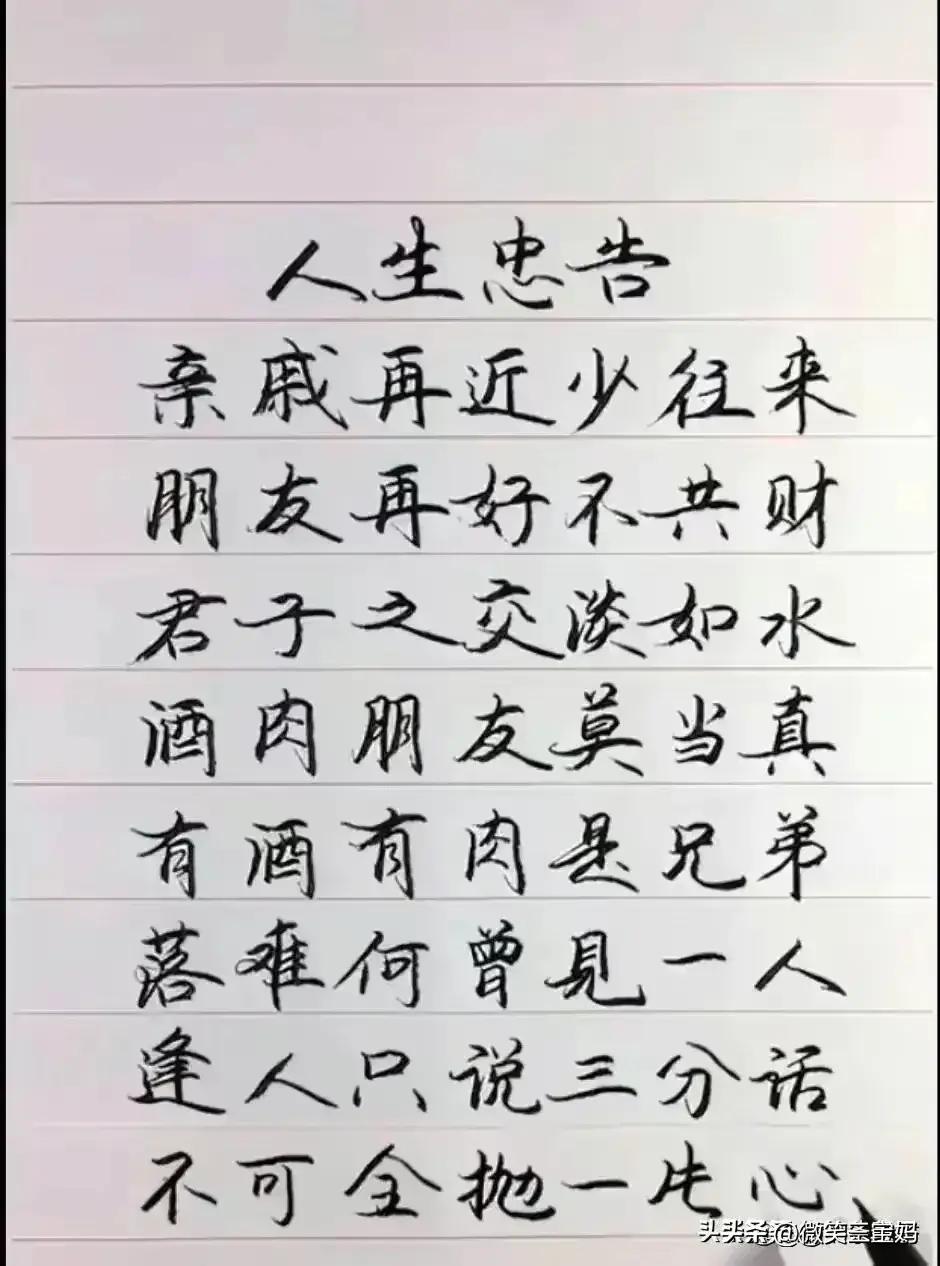 人生忠告
亲戚再近少往来
朋友再好不共财
君子之交淡如水
酒肉朋友莫当真
有酒有肉是兄弟
落难何曾见一人
逢人只说三分话
不可全抛一片心
头条 @微笑宝宝妈